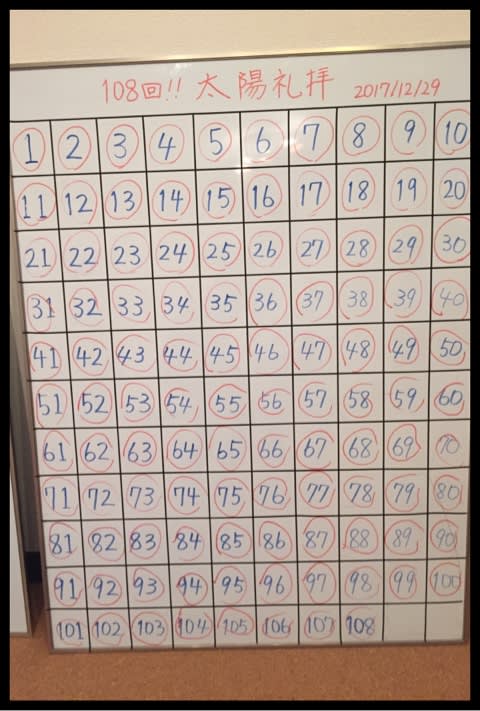 108回!! 太陽礼拝 2017/12/29
1 2 3 4 5 6 7 8 9 10
11 12 13 14 15 16 17 18 19 20
21 22 23 24 25 26 27 28 29 30
31 32 33 34 35 36 37 38 39 40
41 42 43 44 45 46 47 48 49 50
51 52 53 54 55 56 57 58 59 60
61 62 63 64 65 66 67 68 69 70
71 72 73 74 75 76 77 78 79 80
81 82 83 84 85 86 87 88 89 90
91 92 93 94 95 96 97 98 99 100
101 102 103 104 105 106 107 108